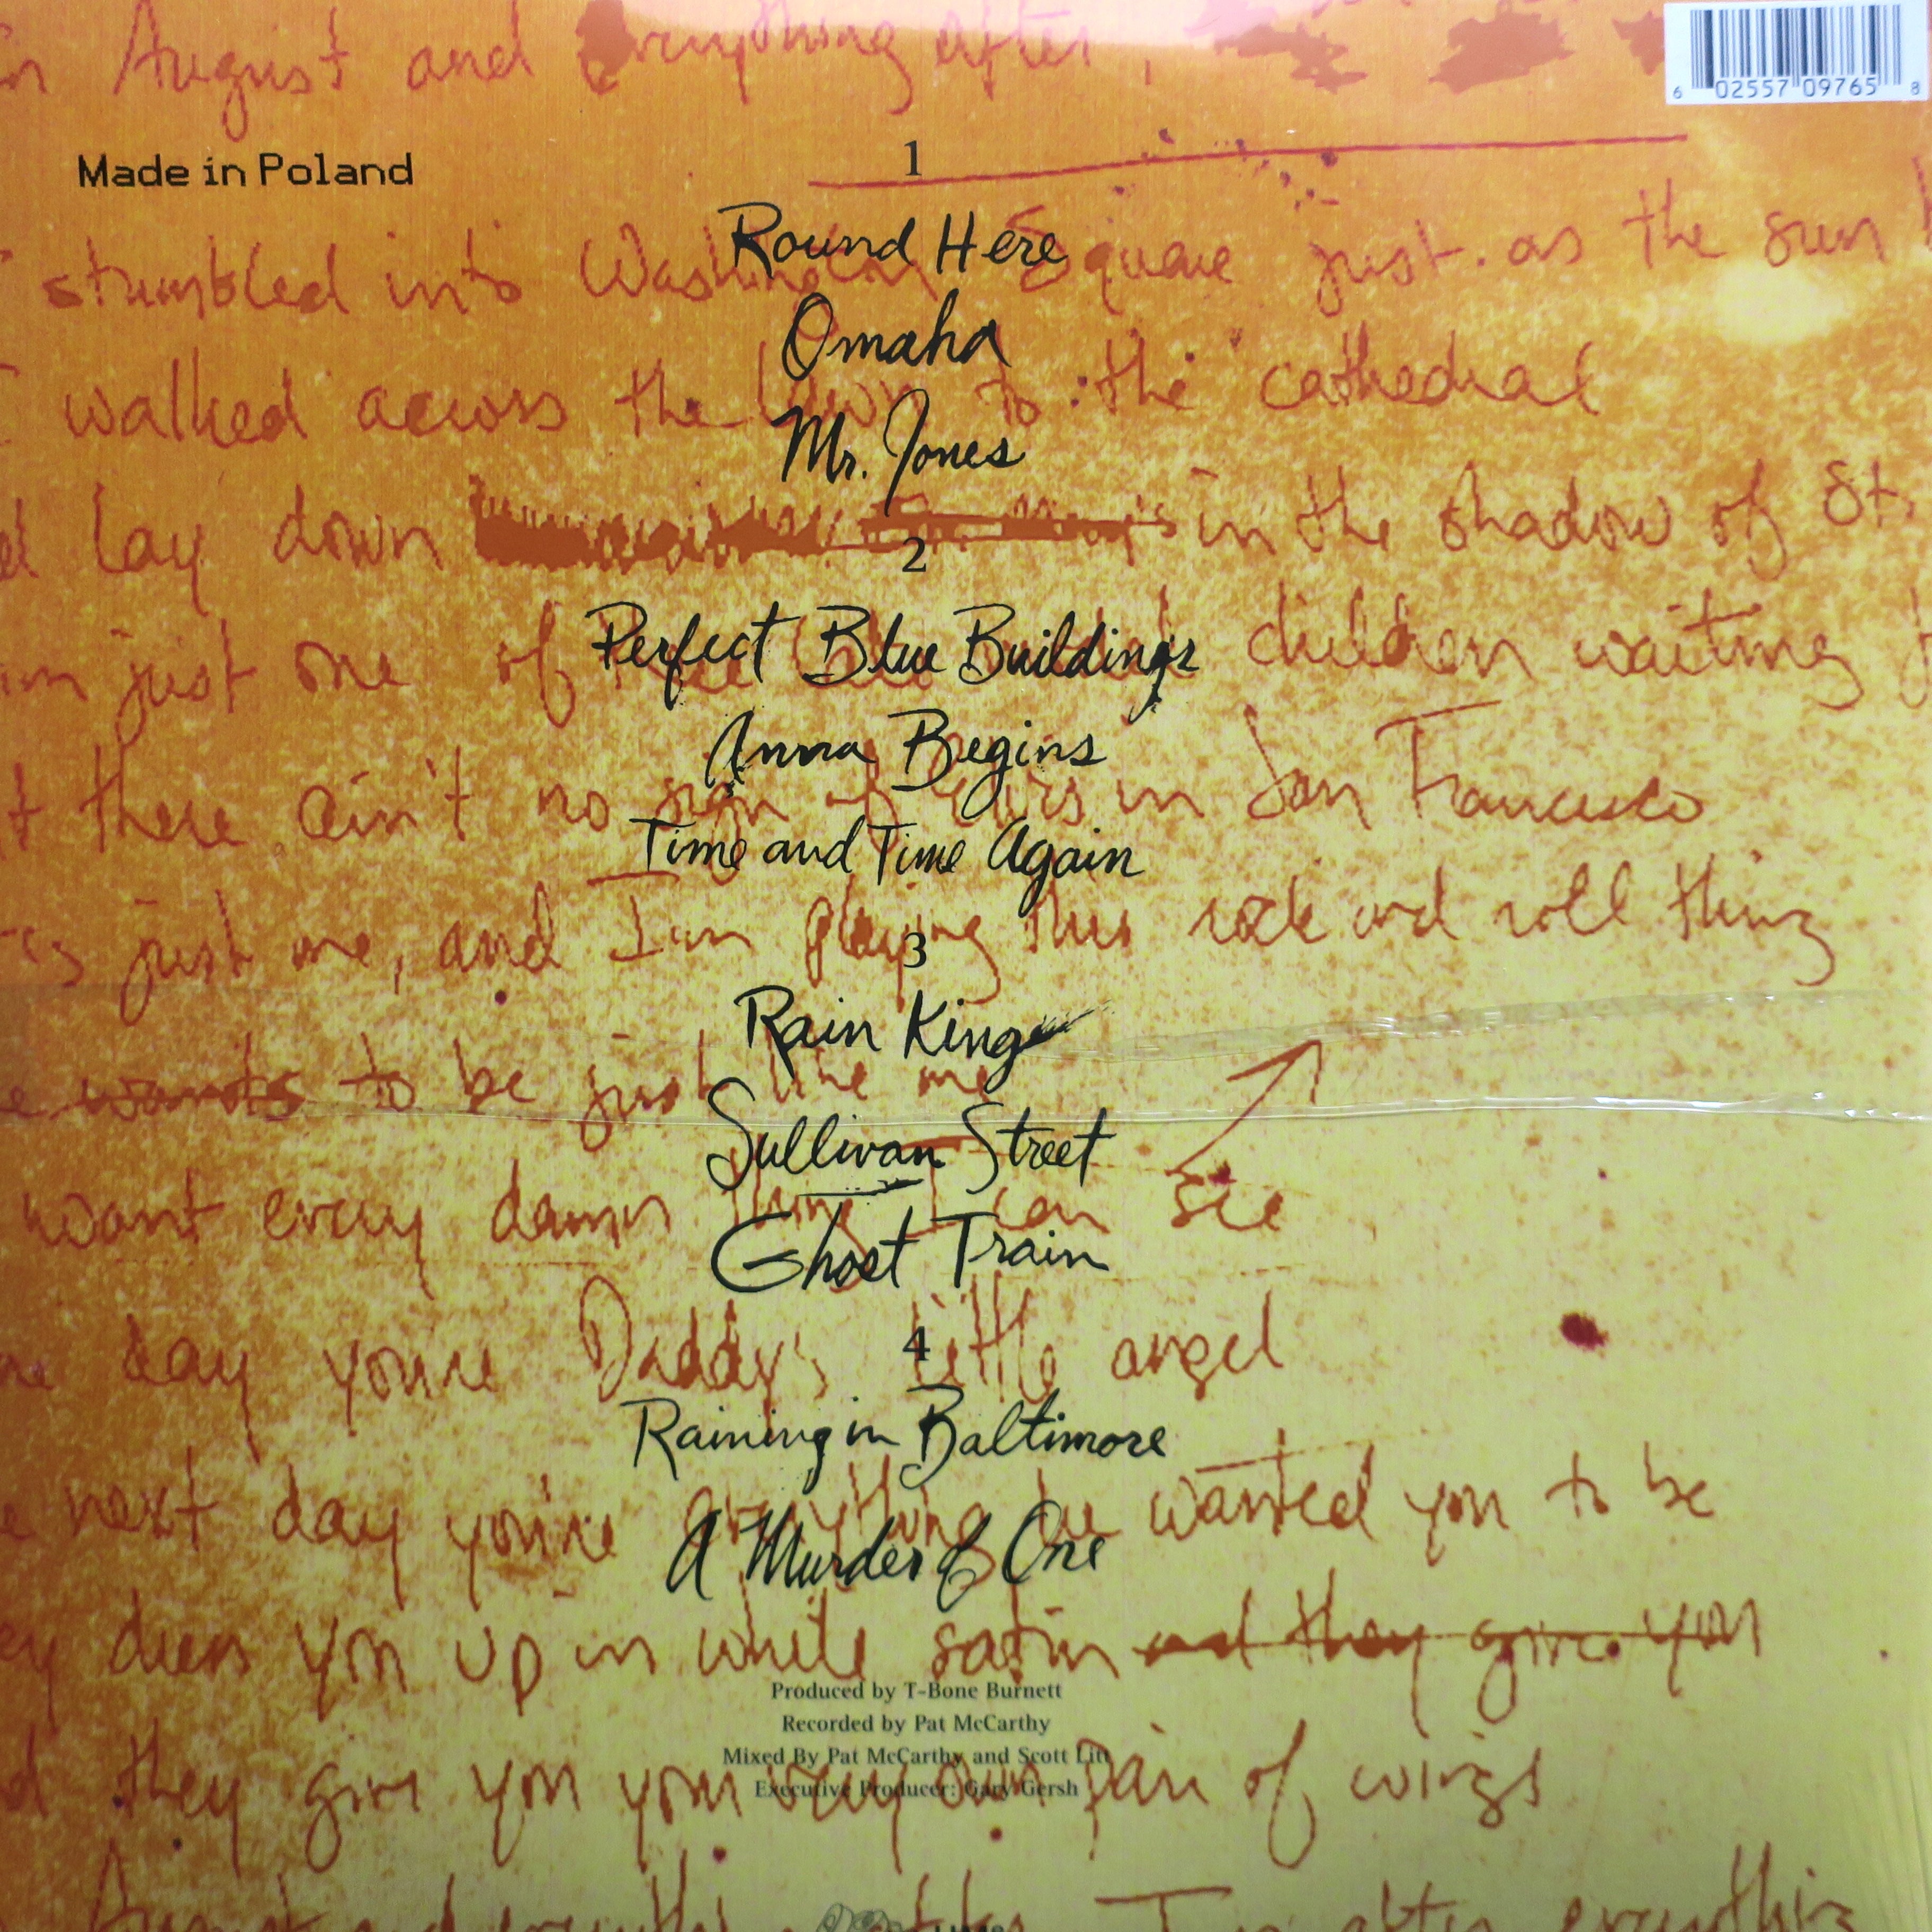 in August and everything after,
6 02557 09765 8
Made in Poland
1
Round Here
stumbled into Washington Square just as the sun
Omaha
walked across the lawn to the cathedral
Mr. Jones
lay down in the shadow of St.
2
Perfect Blue Buildings
just one of children waiting
Anna Begins
there ain't no in San Francisco
Time and Time Again
just me, and I'm playing this rock and roll thing
3
Rain King
wants to be just like me
Sullivan Street
want every damn thing I can see
Ghost Train
day you're Daddy's little angel
4
Raining in Baltimore
next day you're everything he wanted you to be
A Murder of One
dress you up in white satin and they give you
Produced by T-Bone Burnett
Recorded by Pat McCarthy
Mixed By Pat McCarthy and Scott Litt
Executive Producer: Gary Gersh
they give you your very own pair of wings
August and everything after I'm after everything